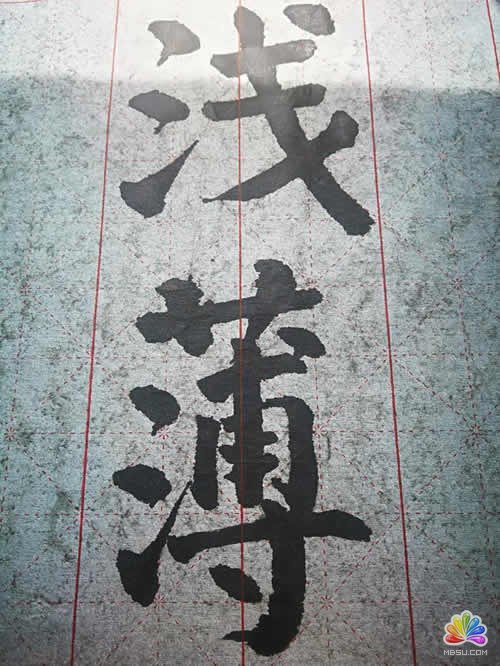 浅薄
MBSU.COM